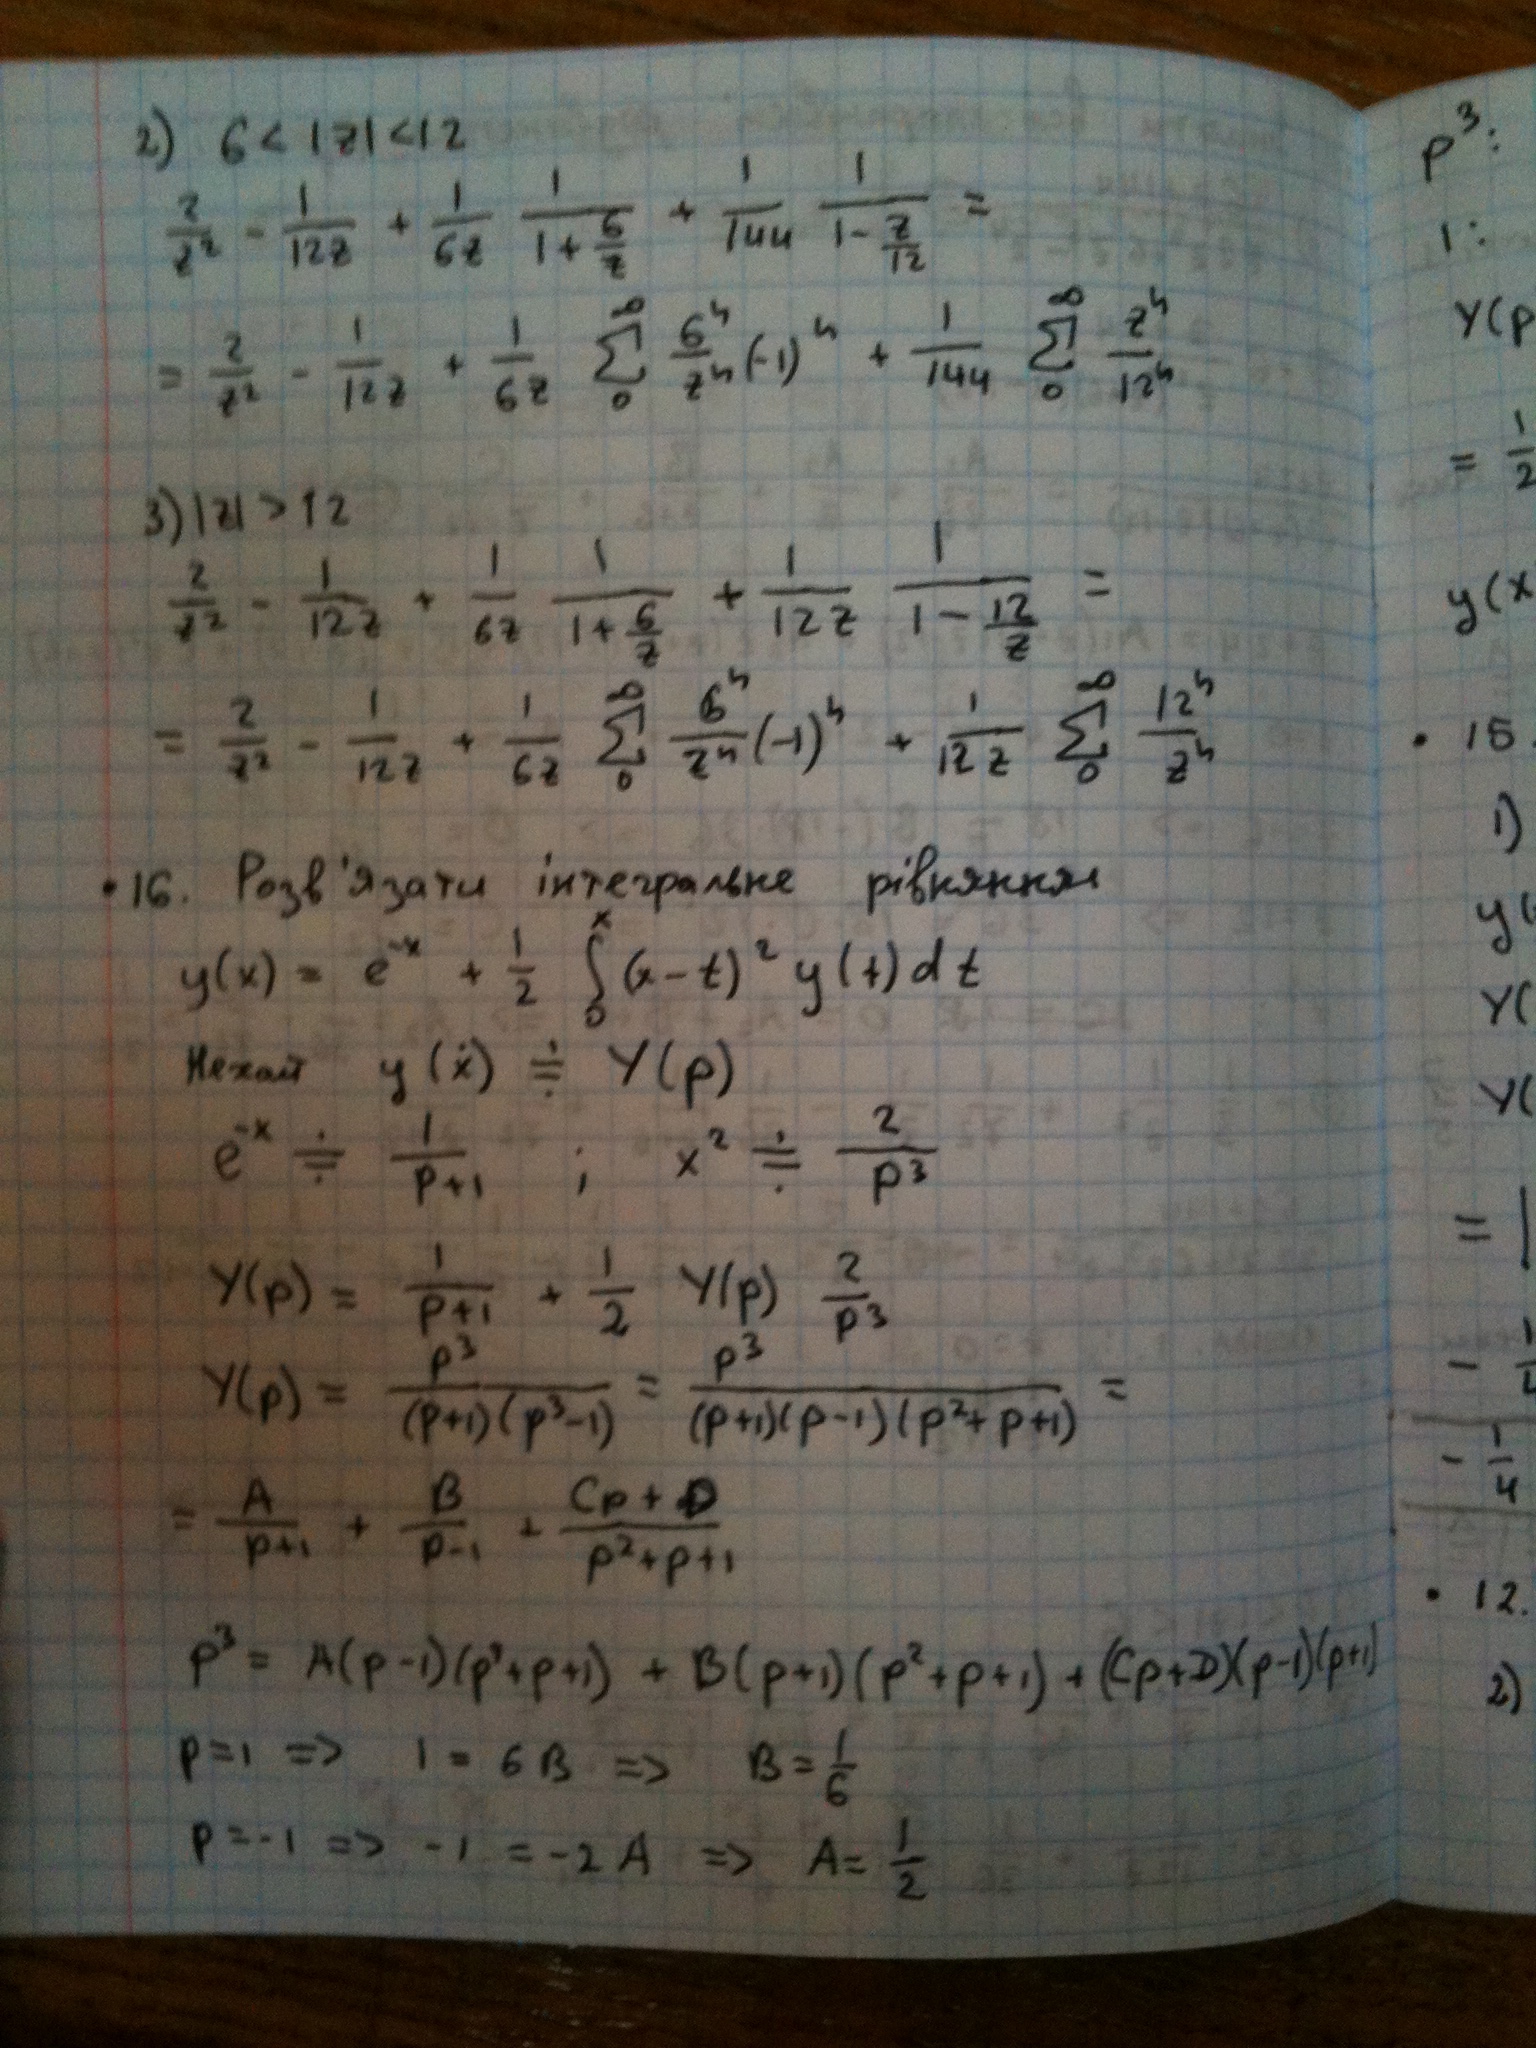 2) 6 < |z| < 12
2/z² - 1/12z + 1/6z 1/(1 + 6/z) + 1/144 1/(1 - z/12) =
= 2/z² - 1/12z + 1/6z ∑₀^∞ 6ⁿ/zⁿ (-1)ⁿ + 1/144 ∑₀^∞ zⁿ/12ⁿ
3) |z| > 12
2/z² - 1/12z + 1/6z 1/(1 + 6/z) + 1/12z 1/(1 - 12/z) =
= 2/z² - 1/12z + 1/6z ∑₀^∞ 6ⁿ/zⁿ (-1)ⁿ + 1/12z ∑₀^∞ 12ⁿ/zⁿ
• 16. Розв'язати інтегральне рівняння
y(x) = e^-x + 1/2 ∫₀^x (x - t)² y(t) dt
Нехай y(x) ≑ Y(p)
e^-x ≑ 1/(p+1) ; x² ≑ 2/p³
Y(p) = 1/(p+1) + 1/2 Y(p) 2/p³
Y(p) = p³/((p+1)(p³-1)) = p³/((p+1)(p-1)(p²+p+1)) =
= A/(p+1) + B/(p-1) + (Cp + D)/(p²+p+1)
p³ = A(p-1)(p²+p+1) + B(p+1)(p²+p+1) + (Cp+D)(p-1)(p+1)
p=1 => 1 = 6B => B = 1/6
p=-1 => -1 = -2A => A = 1/2
p³:
1:
Y(p
= 1/2
y(x
• 15.
1)
y(
Y(
Y(
= |
- 1/4
• 12.
2)